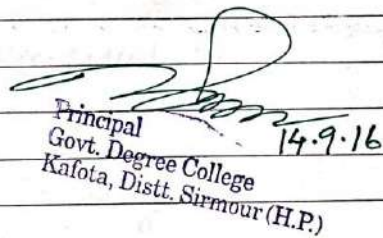 14.9.16
Principal
Govt. Degree College
Kafota, Distt. Sirmour (H.P.)